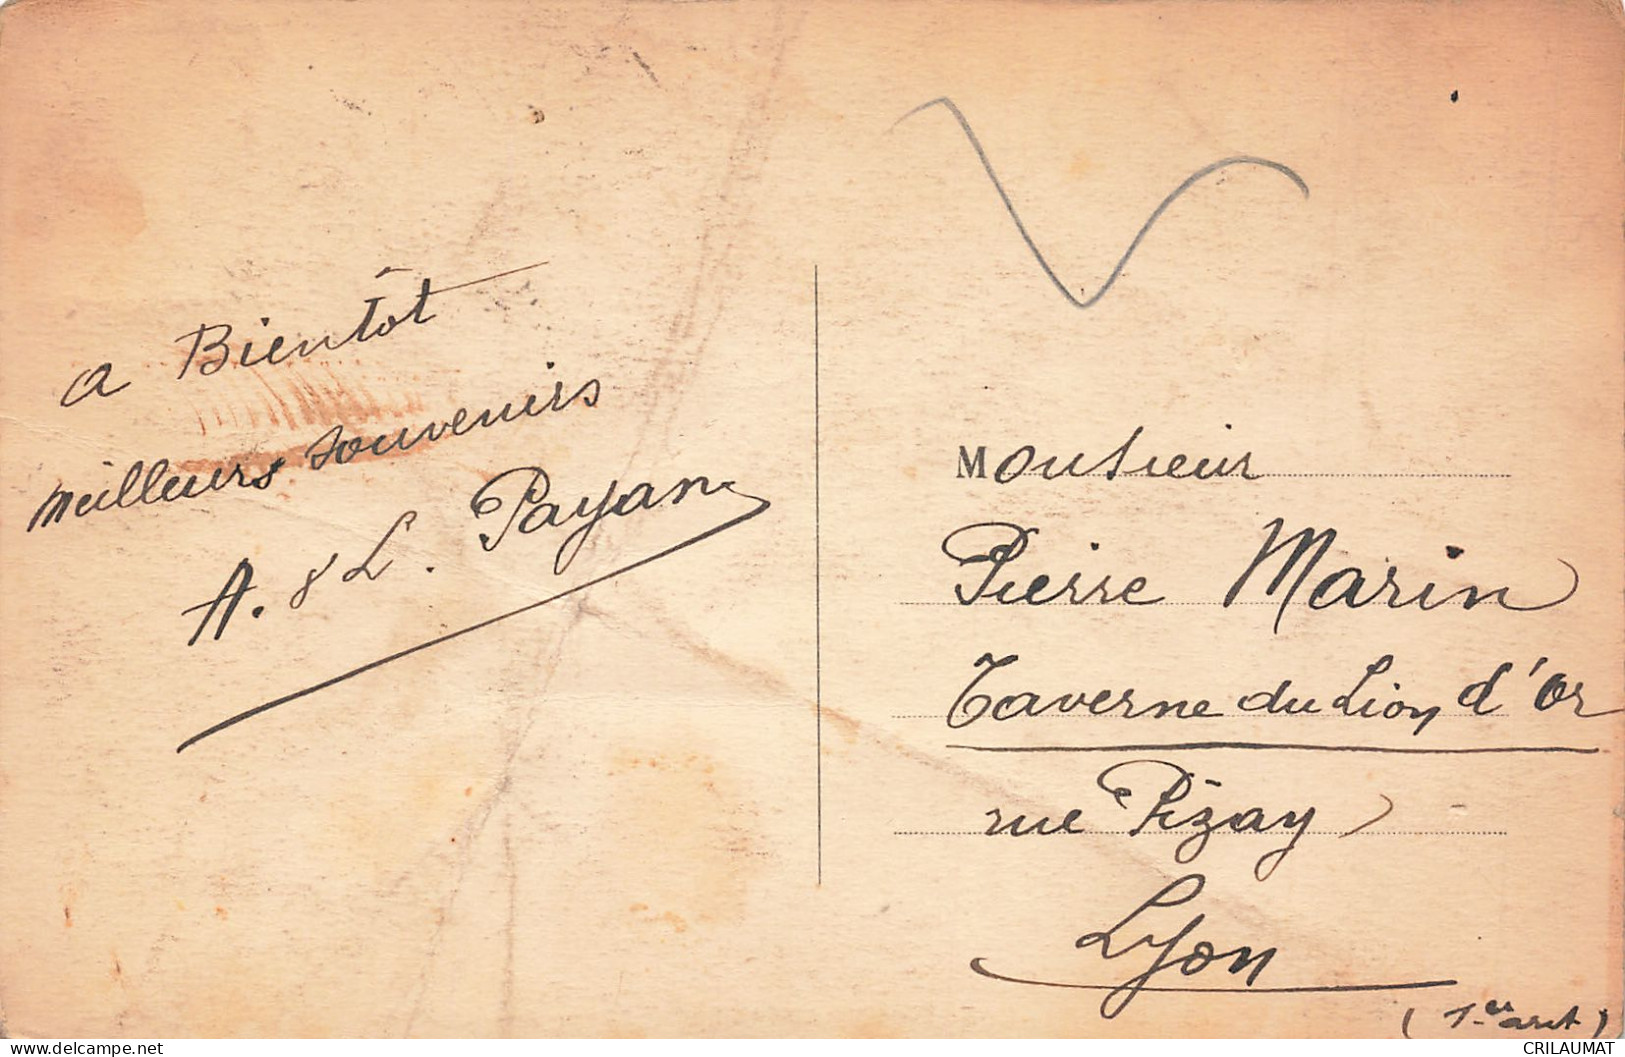 a Bientôt
meilleurs souvenirs
A. & L. Payan
Monsieur
Pierre Marin
Taverne du Lion d'or
rue Pizay
Lyon
(1er arrt)
delcampe.net
CRILAUMAT